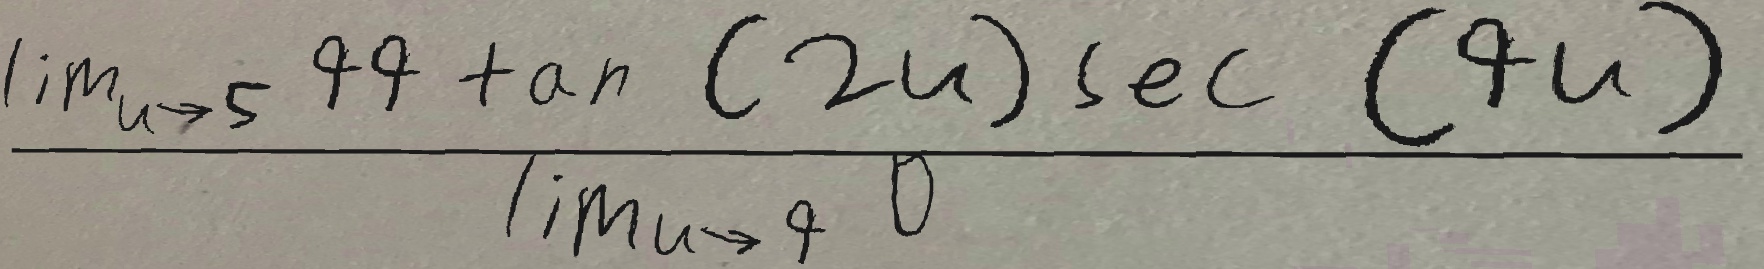 lim_{u→5} 44 tan (2u) sec (4u)
lim_{u→4} 0